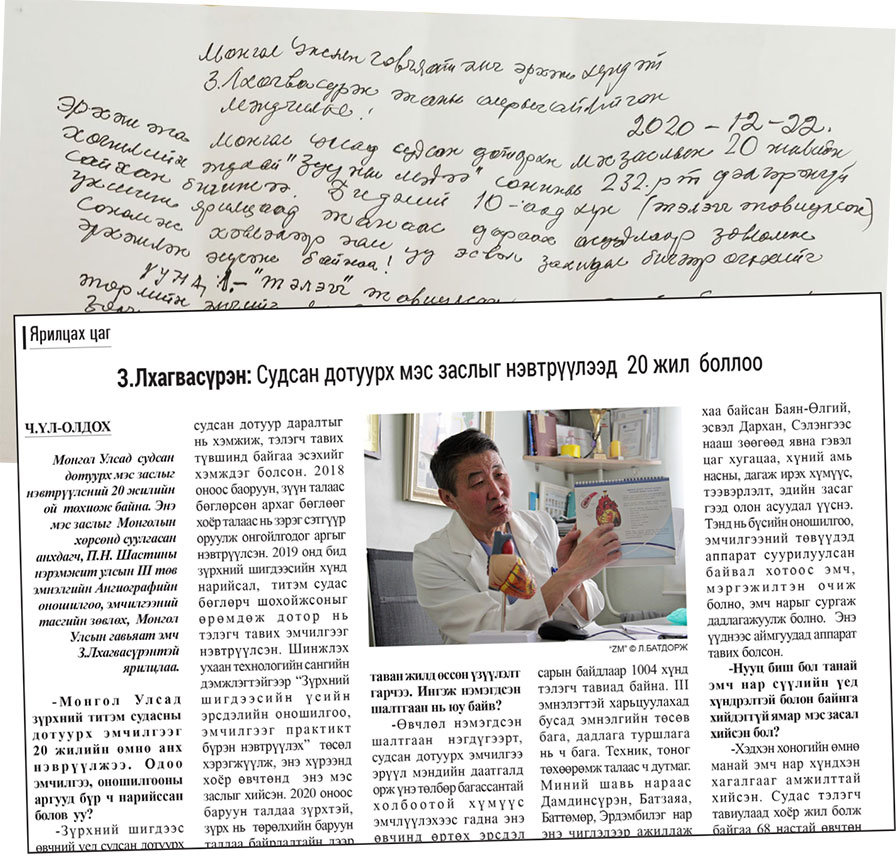 Монгол Улсын гавьяат эмч эрхэм хүндэт
З.Лхагвасүрэн
2020-12-22.
Эрхэм
Монгол Улсад судсан дотуурх мэс заслын 20 жилийн
"Зууны мэдээ" сонины 232.
сайхан Бидний 10-аад хүн (тэлэгч тавиулсан)
ярилцаад танаас дараах асуудлаар
хэвлэлээр уу эсвэл захидал бичгээр өгөхийг
эрхэмлэн хүсэж байнаа!
"тэлэгч" тавиулсан
Ярилцах цаг
З.Лхагвасүрэн: Судсан дотуурх мэс заслыг нэвтрүүлээд 20 жил боллоо
Ч.ҮЛ-ОЛДОХ
Монгол Улсад судсан
дотуурх мэс заслыг
нэвтрүүлсний 20 жилийн
ой тохиож байна. Энэ
мэс заслыг Монголын
хөрсөнд суулгасан
анхдагч, П.Н. Шастины
нэрэмжит улсын III төв
эмнэлгийн Ангиографийн
оношилгоо, эмчилгээний
тасгийн зөвлөх, Монгол
Улсын гавьяат эмч
З.Лхагвасүрэнтэй
ярилцлаа.
-Монгол Улсад
зүрхний титэм судасны
дотуурх эмчилгээг
20 жилийн өмнө анх
нэврүүлжээ. Одоо
эмчилгээ, оношилгооны
аргууд бүр ч нарийссан
болов уу?
-Зүрхний шигдээс
өвчний үед судсан дотуурх
судсан дотуур даралтыг
нь хэмжиж, тэлэгч тавих
түвшинд байгаа эсэхийг
хэмждэг болсон. 2018
оноос баоруун, зүүн талаас
бөглөрсөн архаг бөглөөг
хоёр талаас нь зэрэг сэтгүүр
оруулж онгойлгодог аргыг
нэвтрүүлсэн. 2019 онд бид
зүрхний шигдээсийн хүнд
нарийсал, титэм судас
бөглөрч шохойжсоныг
өрөмдөж дотор нь
тэлэгч тавих эмчилгээг
нэвтрүүлсэн. Шинжлэх
ухаан технологийн сангийн
дэмжлэгтэйгээр “Зүрхний
шигдээсийн үеийн
эрсдэлийн оношилгоо,
эмчилгээг практикт
бүрэн нэвтрүүлэх” төсөл
хэрэгжүүлж, энэ хүрээнд
хоёр өвчтөнд энэ мэс
заслыг хийсэн. 2020 оноос
баруун талдаа зүрхтэй,
зүрх нь төрөлхийн баруун
талдаа байрлалтайн дээр
"ZM" © Л.БАТДОРЖ
таван жилд өссөн үзүүлэлт
гарчээ. Ингэж нэмэгдсэн
шалтгаан нь юу байв?
-Өвчлөл нэмэгдсэн
шалтгаан нэгдүгээрт,
судсан дотуурх эмчилгээ
эрүүл мэндийн даатгалд
орж үнэ төлбөр багассантай
холбоотой хүмүүс
эмчлүүлэхээс гадна энэ
өвчинд өртөх эрсдэл
сарын байдлаар 1004 хүнд
тэлэгч тавиад байна. III
эмнэлэгтэй харьцуулахад
бусад эмнэлгийн төсөв
бага, дадлага туршлага
нь ч бага. Техник, тоног
төхөөрөмж талаас ч дутмаг.
Миний шавь нараас
Дамдинсүрэн, Батзаяа,
Баттөмөр, Эрдэмбилэг нар
энэ чиглэлээр ажиллаж
хаа байсан Баян-Өлгий,
эсвэл Дархан, Сэлэнгээс
нааш зөөгөөд явна гэвэл
цаг хугацаа, хүний амь
насны, дагаж ирэх хүмүүс,
тээвэрлэлт, эдийн засаг
гээд олон асуудал үүснэ.
Тэнд нь бүсийн оношилгоо,
эмчилгээний төвүүдэд
аппарат суурилуулсан
байвал хотоос эмч,
мэргэжилтэн очиж
болно, эмч нарыг сургаж
дадлагажуулж болно. Энэ
үүднээс аймгуудад аппарат
тавих болсон.
-Нууц биш бол танай
эмч нар сүүлийн үед
хүндрэлтэй болон байнга
хийдэггүй ямар мэс засал
хийсэн бол?
-Хэдхэн хоногийн өмнө
манай эмч нар хүндхэн
хагалгааг амжилттай
хийсэн. Судас тэлэгч
тавиулаад хоёр жил болж
байгаа 68 настай өвчтөн